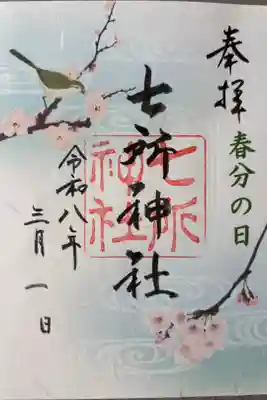 奉拝
春分の日
七所神社
七所神社
令和八年
三月一日